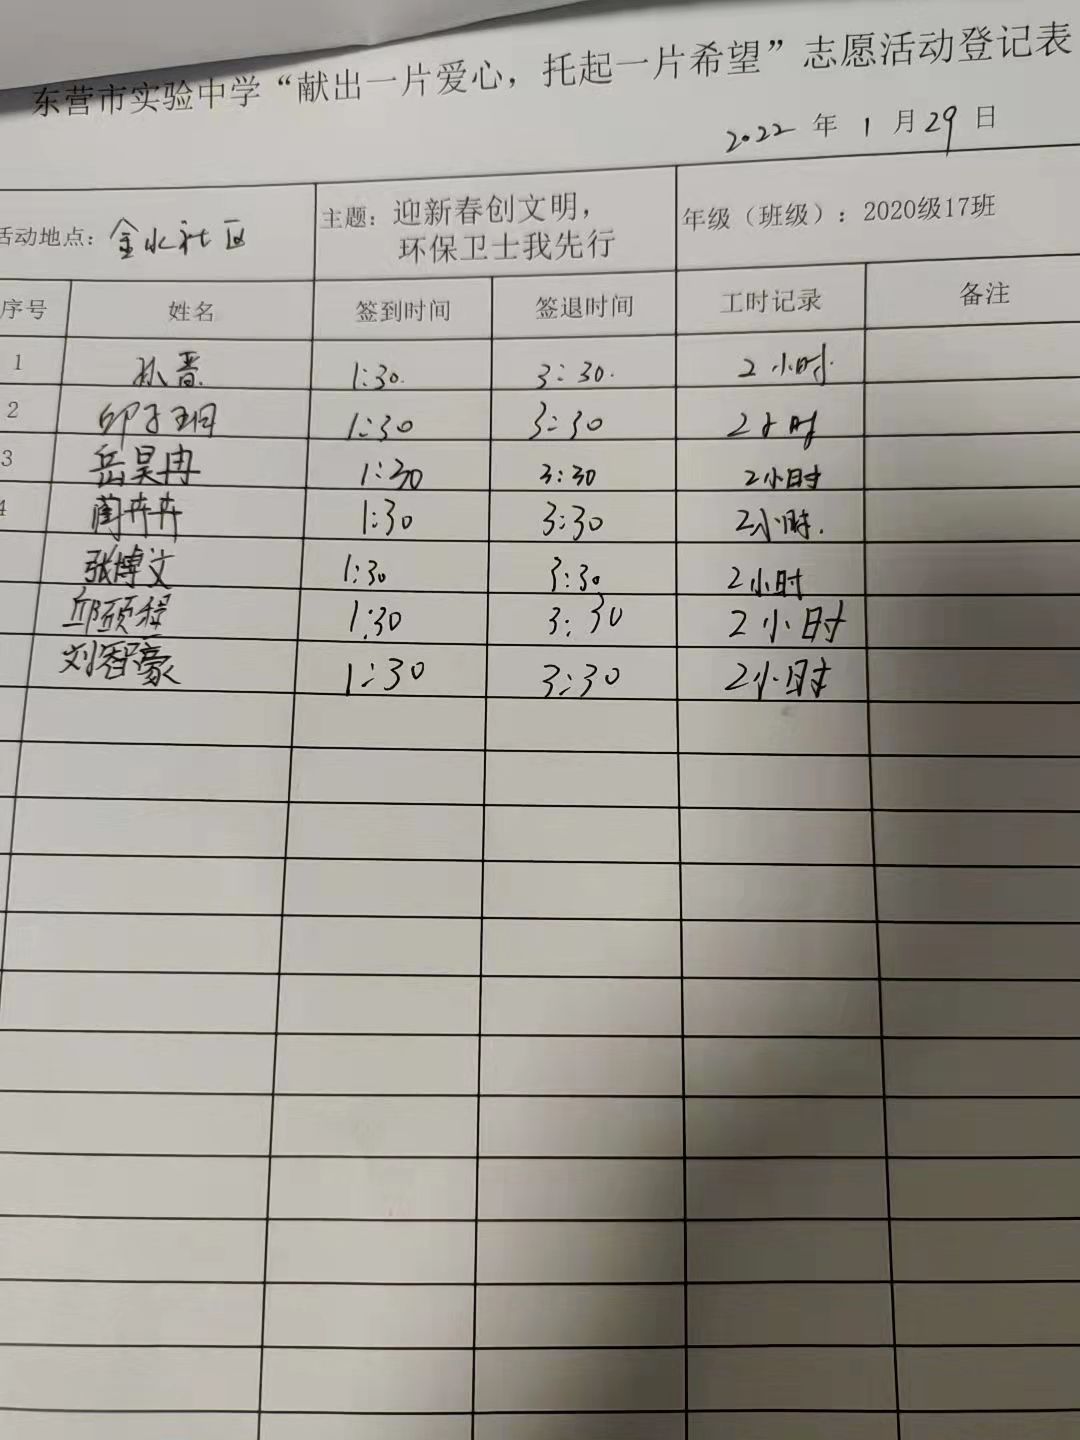 东营市实验中学“献出一片爱心，托起一片希望”志愿活动登记表
2022 年 1 月 29 日
活动地点：金水社区 主题：迎新春创文明， 年级（班级）：2020级17班
环保卫士我先行
序号 姓名 签到时间 签退时间 工时记录 备注
1 孙晋 1:30 3:30 2小时
2 邱子玥 1:30 3:30 2小时
3 岳昊冉 1:30 3:30 2小时
4 蔺卉卉 1:30 3:30 2小时
张博文 1:30 3:30 2小时
邱硕程 1:30 3:30 2小时
刘智豪 1:30 3:30 2小时